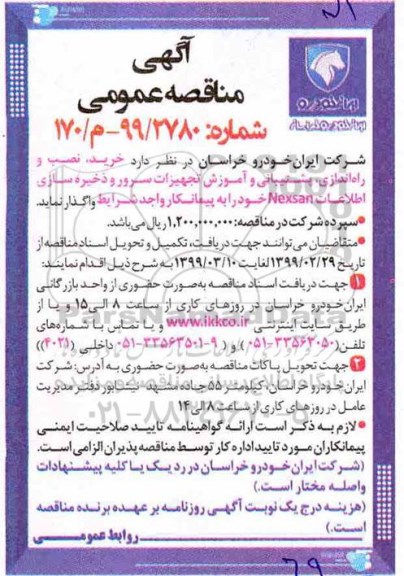 آگهی
مناقصه عمومی
شماره: ۹۹/۲۷۸۰-م/۱۷۰
ایران خودرو
ایران خودرو خراسان
شرکت ایران‌خودرو خراسان در نظر دارد خرید، نصب و
راه‌اندازی، پشتیبانی و آموزش تجهیزات سرور و ذخیره سازی
اطلاعات Nexsan خود را به پیمانکار واجد شرایط واگذار نماید.
• سپرده شرکت در مناقصه: ۱,۲۰۰,۰۰۰,۰۰۰ ریال می‌باشد.
• متقاضیان می‌توانند جهت دریافت، تکمیل و تحویل اسناد مناقصه از
تاریخ ۱۳۹۹/۰۲/۲۹ لغایت ۱۳۹۹/۰۳/۱۰ به شرح ذیل اقدام نمایند:
۱ جهت دریافت اسناد مناقصه به‌صورت حضوری از واحد بازرگانی
ایران‌خودرو خراسان در روزهای کاری از ساعت ۸ الی ۱۵ و یا از
طریق سایت اینترنتی www.ikkco.ir و یا تماس با شماره‌های
تلفن (۳۳۵۶۳۰۵۰-۰۵۱) و (۹-۳۳۵۶۳۵۰۱-۰۵۱ داخلی (۴۰۲۱))
۲ جهت تحویل پاکات مناقصه به‌صورت حضوری به آدرس: شرکت
ایران‌خودرو خراسان، کیلومتر ۵۵ جاده مشهد - نیشابور دفتر مدیریت
عامل در روزهای کاری از ساعت ۸ الی ۱۴
• لازم به ذکر است ارائه گواهینامه تایید صلاحیت ایمنی
پیمانکاران مورد تایید اداره کار توسط مناقصه پذیران الزامی است.
(شرکت ایران‌خودرو خراسان در رد یک یا کلیه پیشنهادات
واصله مختار است.)
(هزینه درج یک نوبت آگهی روزنامه بر عهده برنده مناقصه
است.)
روابط عمومی